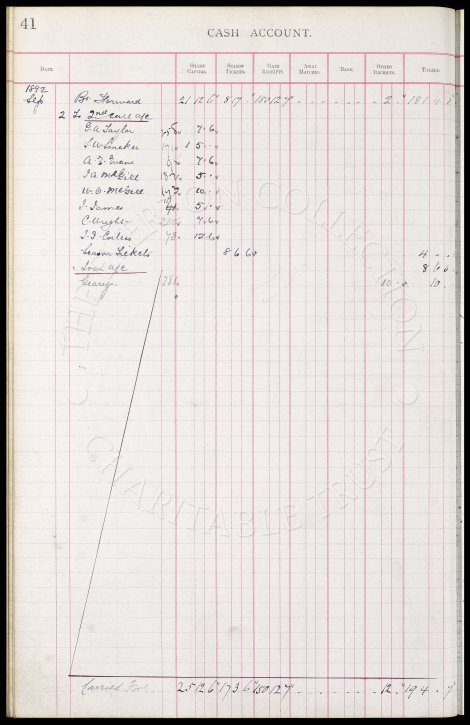 41
CASH ACCOUNT.
DATE. SHARE CAPITAL. SEASON TICKETS. GATE RECEIPTS. AWAY MATCHES. BANK. OTHER RECEIPTS. TOTALS.
1892
Sep Bt Forward 21 12 6 8 17 " 150 12 7 2 " 
2 To 2nd Call a/c
G.A Taylor 7 6
1 5
A. E. Evans 7 6
J A McGill 5
W. C. McGill 10
J. James 5
C Wright 7 6
12 6
Season Tickets 8 6 6 4
Loan a/c 8 6 6
10 10
THE EVERTON COLLECTION
CHARITABLE TRUST
Carried For. 25 12 6 17 3 6 150 12 7 12 " 194 " 7